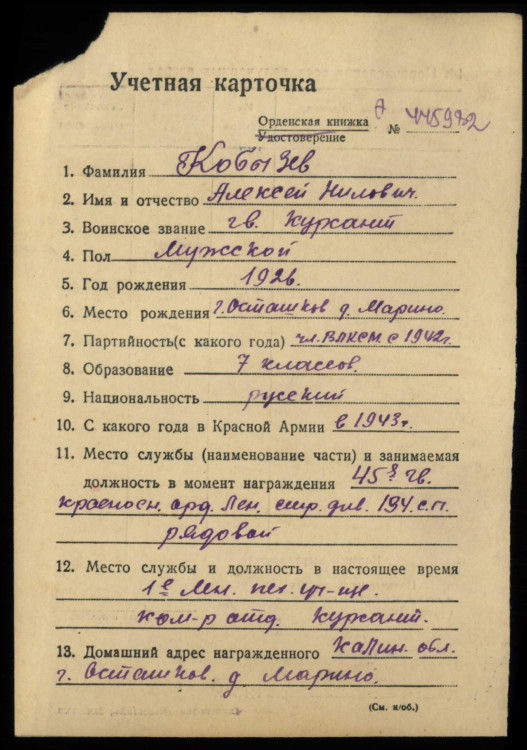 Учетная карточка
Орденская книжка А
Удостоверение № 445972
1. Фамилия Кобызев
2. Имя и отчество Алексей Нилович.
3. Воинское звание гв. Курсант
4. Пол Мужской
5. Год рождения 1926.
6. Место рождения г. Осташков д. Марино.
7. Партийность(с какого года) чл. ВЛКСМ с 1942г.
8. Образование 7 классов.
9. Национальность русский
10. С какого года в Красной Армии с 1943г.
11. Место службы (наименование части) и занимаемая
должность в момент награждения 45я гв.
красносн. орд. Лен. стр. див. 134 с.п.
рядовой
12. Место службы и должность в настоящее время
1е Лен. пех. уч-ще.
ком-р отд. Курсант.
13. Домашний адрес награжденного Калин. обл.
г. Осташков. д Марино.
(См. н/об.)